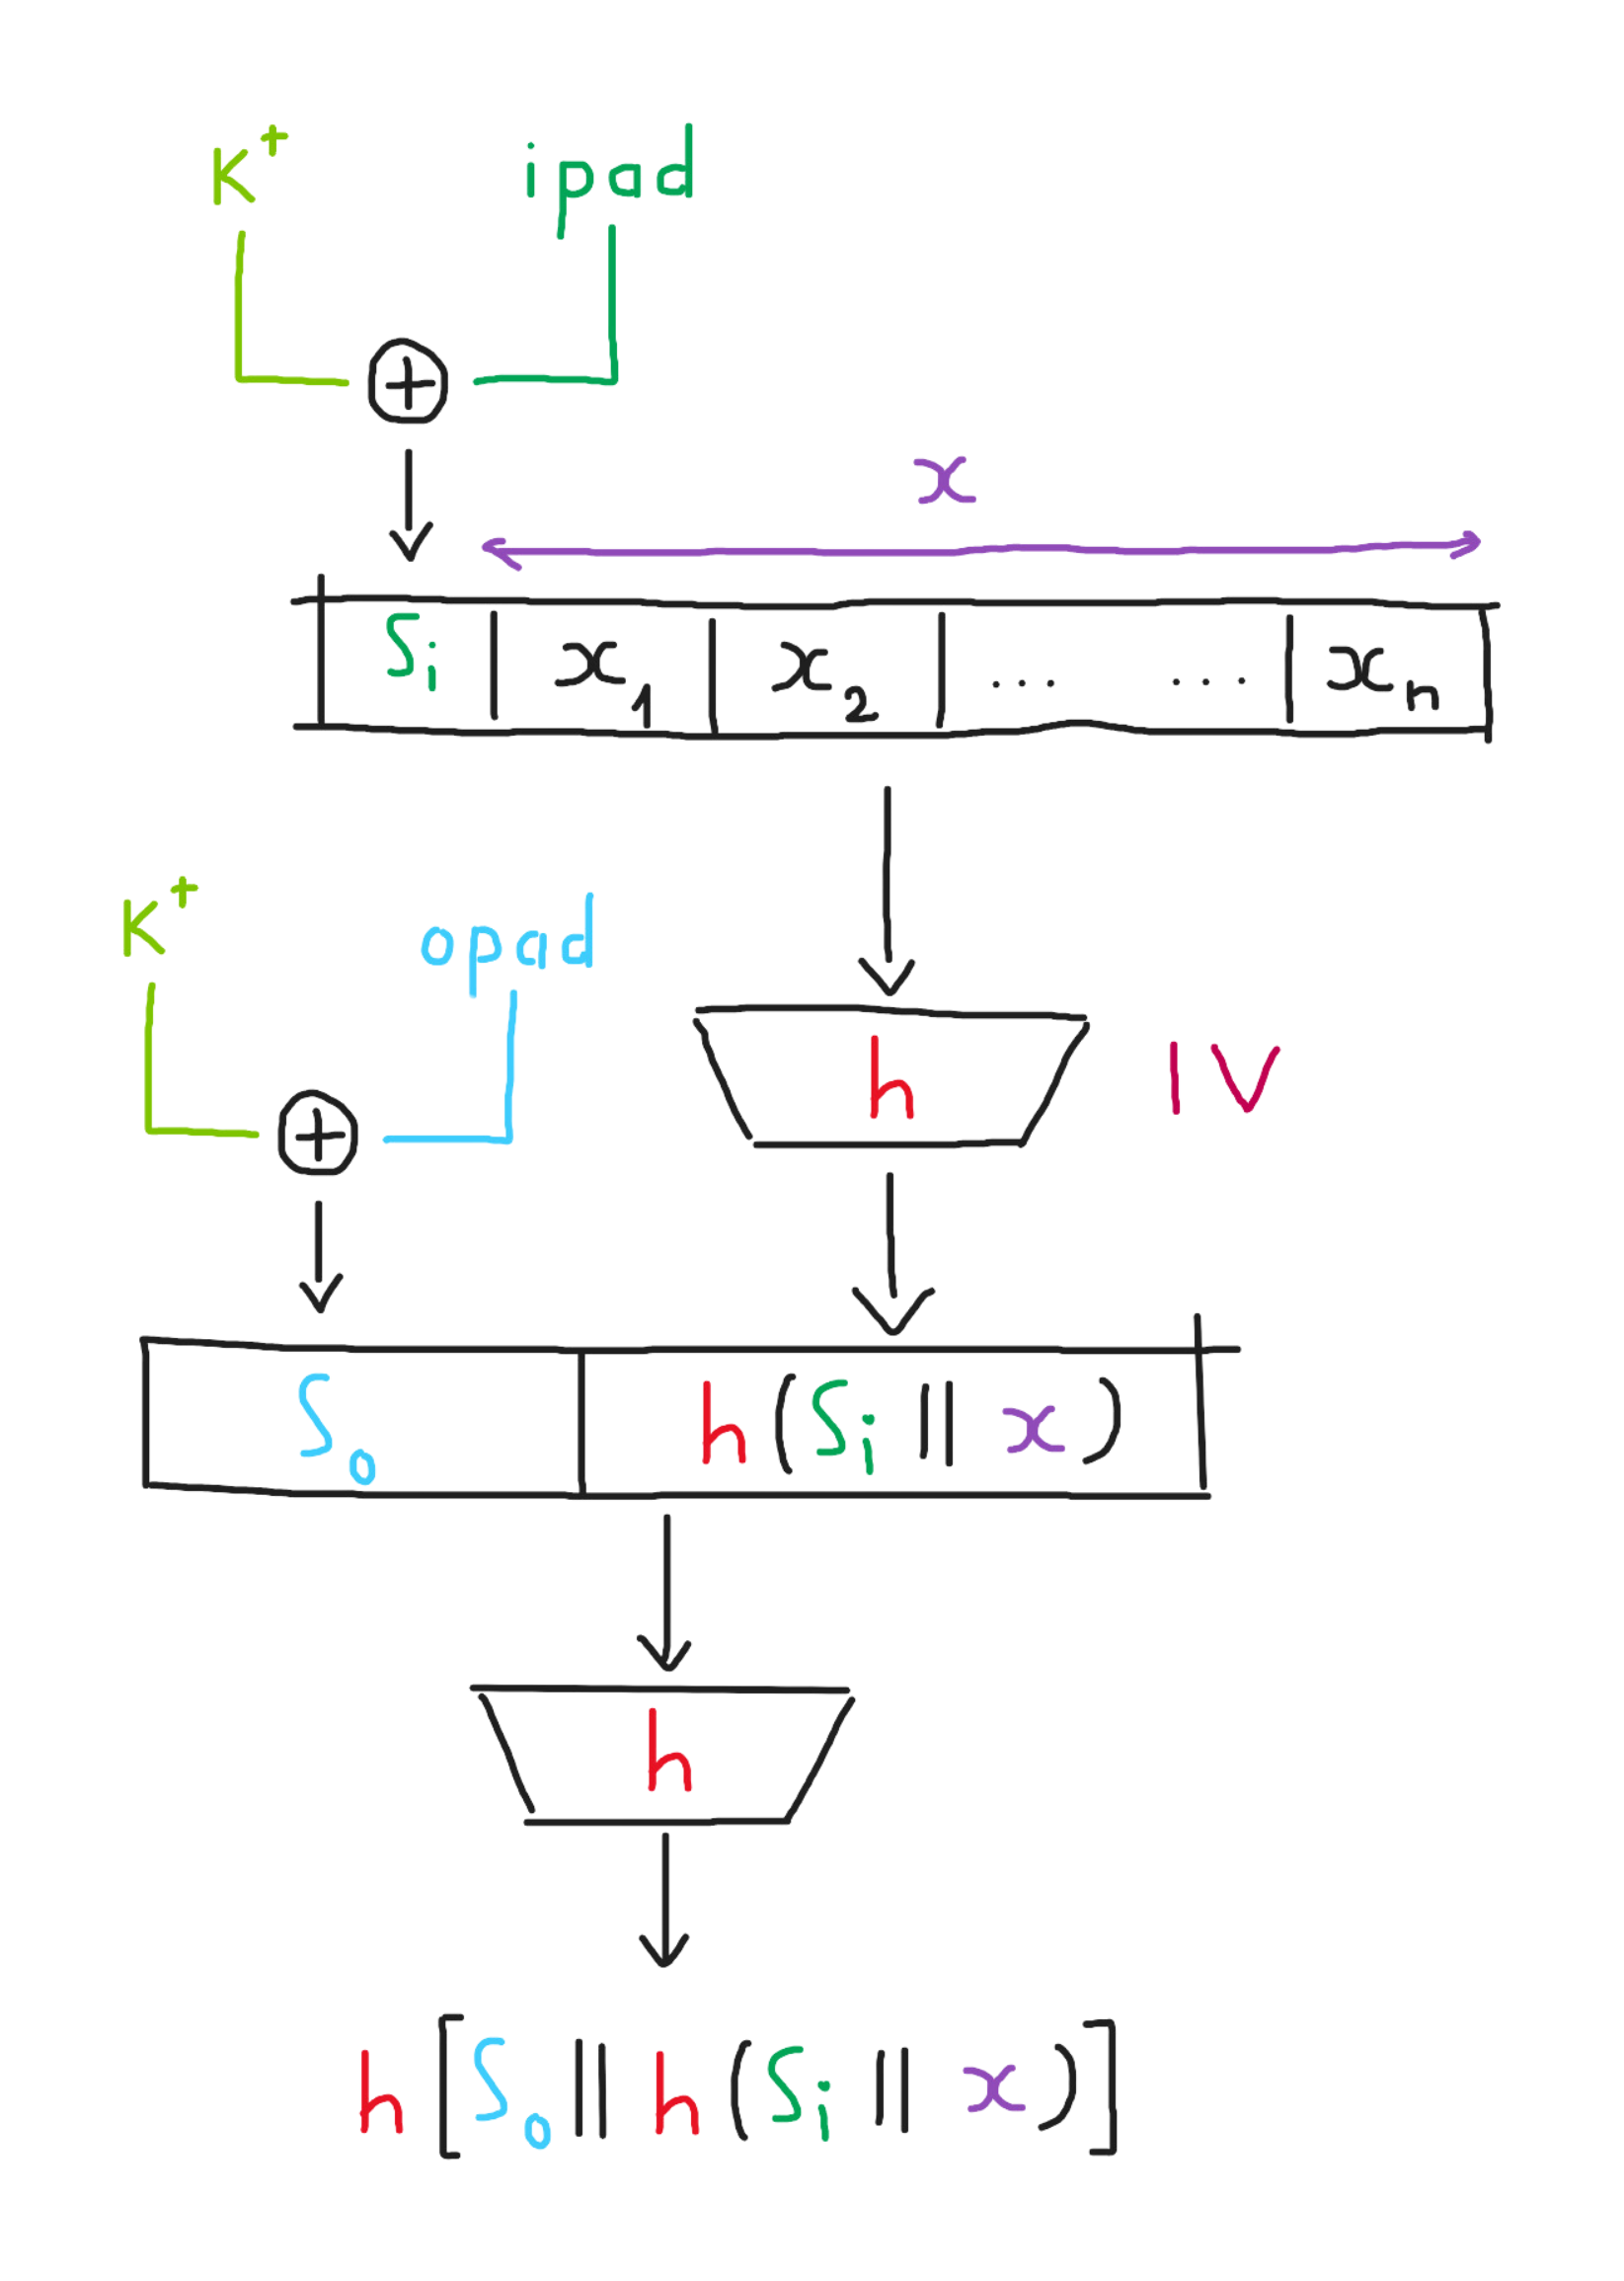 K⁺ ipad
⊕
x
Sᵢ x₁ x₂ ... ... xₙ
K⁺ opad
h IV
⊕
Sₒ h(Sᵢ || x)
h
h[Sₒ || h(Sᵢ || x)]